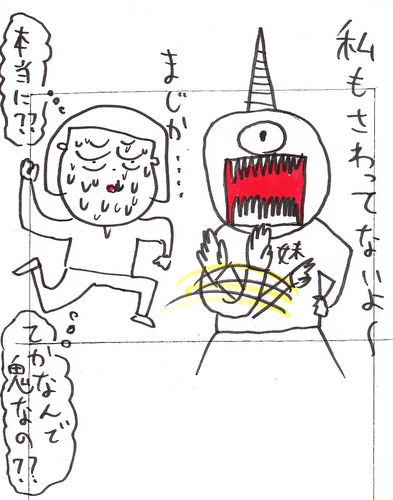 私もさわってないよ〜
妹
まじか……
本当に??
てかなんで
鬼なの??